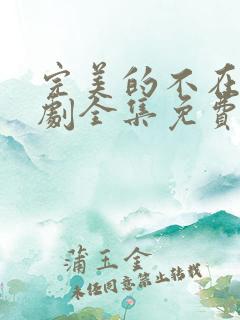 完美的不在
劇全集免費
蒲玉金
未经同意禁止转载